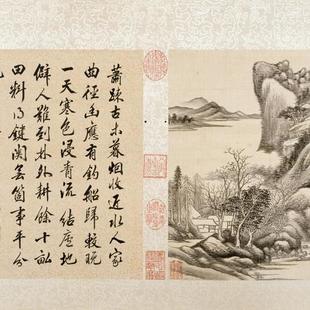 蕭疎古木暮烟收近水人家
曲徑幽應有釣船歸較晚
一天寒色浸青流 結廬地
僻人難到林外耕餘十畝
田料得鍵關無箇事平分